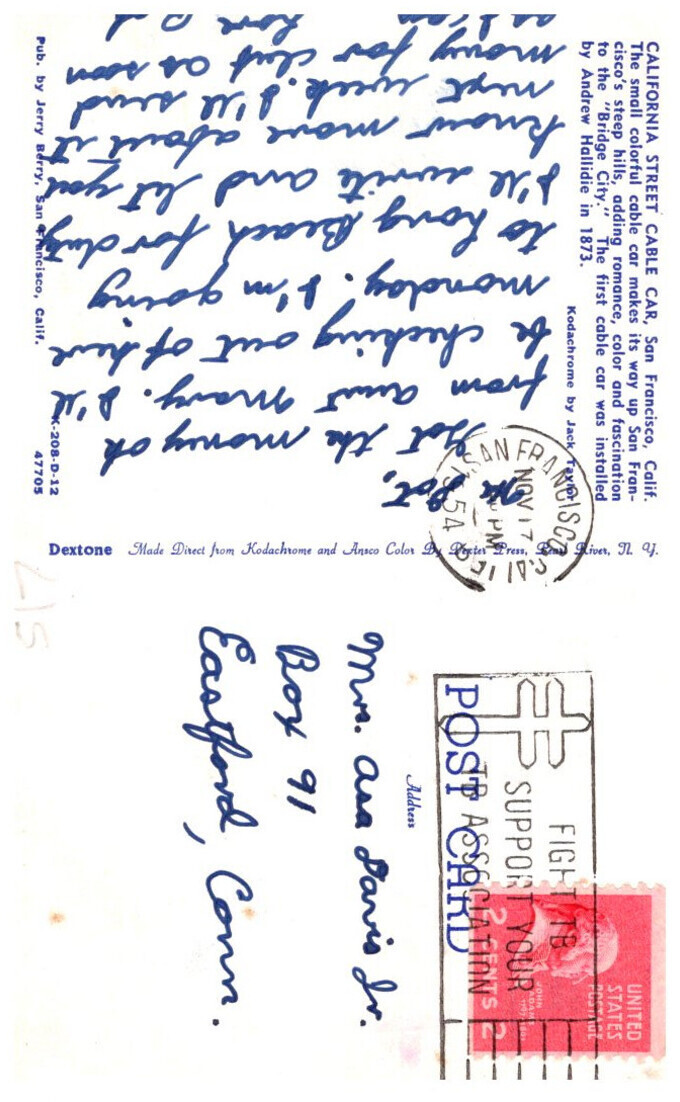 CALIFORNIA STREET CABLE CAR, San Francisco, Calif.
The small colorful cable car makes its way up San Fran-
cisco's steep hills, adding romance, color and fascination
to the "Bridge City." The first cable car was installed
by Andrew Hallidie in 1873.
Kodachrome by Jack Taylor
Hi Dot,
Got the money ok
from aunt Mary. I'll
be checking out of here
monday. I'm going
to Long Beach for duty
I'll write and let you
know more about it
next week. I'll send
money for dut as soon
as I can
Pub. by Jerry Berry, San Francisco, Calif.
K-208-D-12
47705
Dextone Made Direct from Kodachrome and Ansco Color By Dexter Press, Pearl River, N. Y.
SAN FRANCISCO CALIF.
NOV 17
PM
1954
POST CARD
Address
FIGHT TB
SUPPORT YOUR
TB ASSOCIATION
UNITED
STATES
POSTAGE
JOHN
ADAMS
2 CENTS 2
Mrs. Asa Davis Jr.
Box 91
Eastford, Conn.